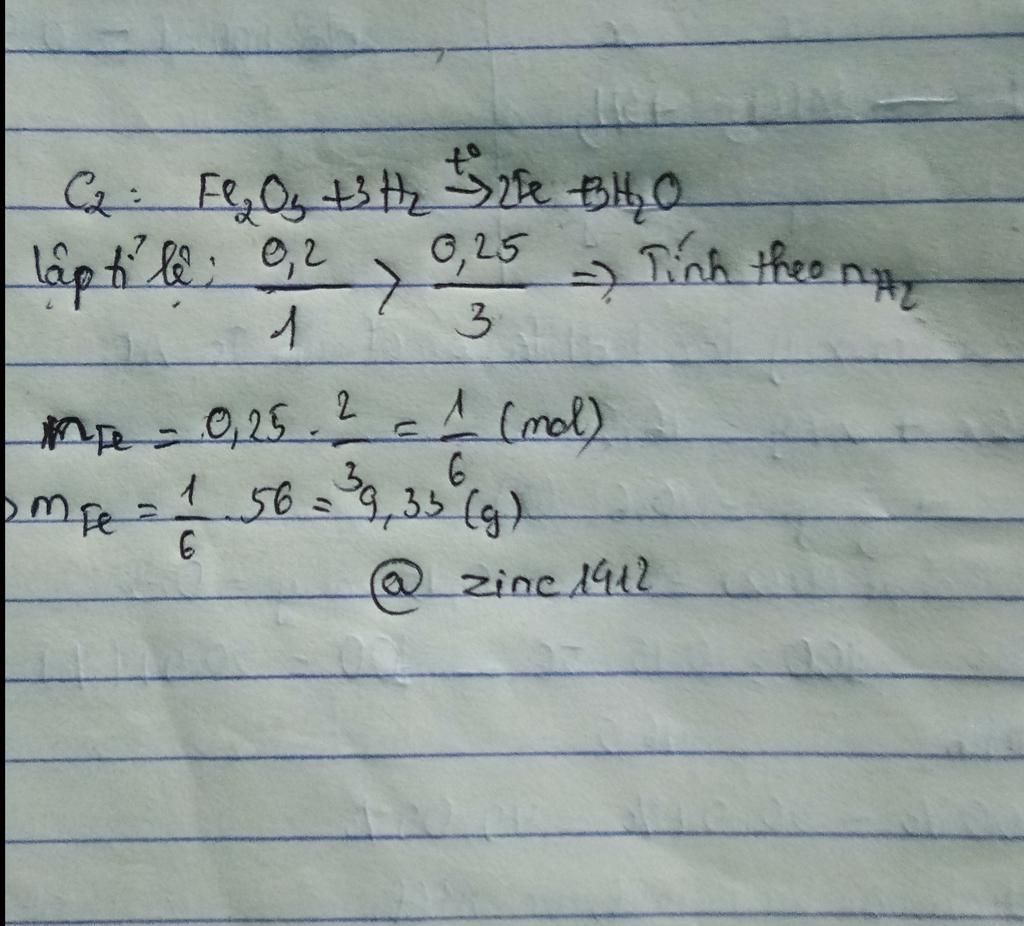 C₂: Fe₂O₃ +3H₂ t°→ 2Fe +3H₂O
lập tỉ lệ: 0,2/1 > 0,25/3 => Tính theo nH₂
nFe = 0,25 . 2/3 = 1/6 (mol)
mFe = 1/6 . 56 = 9,33 (g)
@ zinc 1912